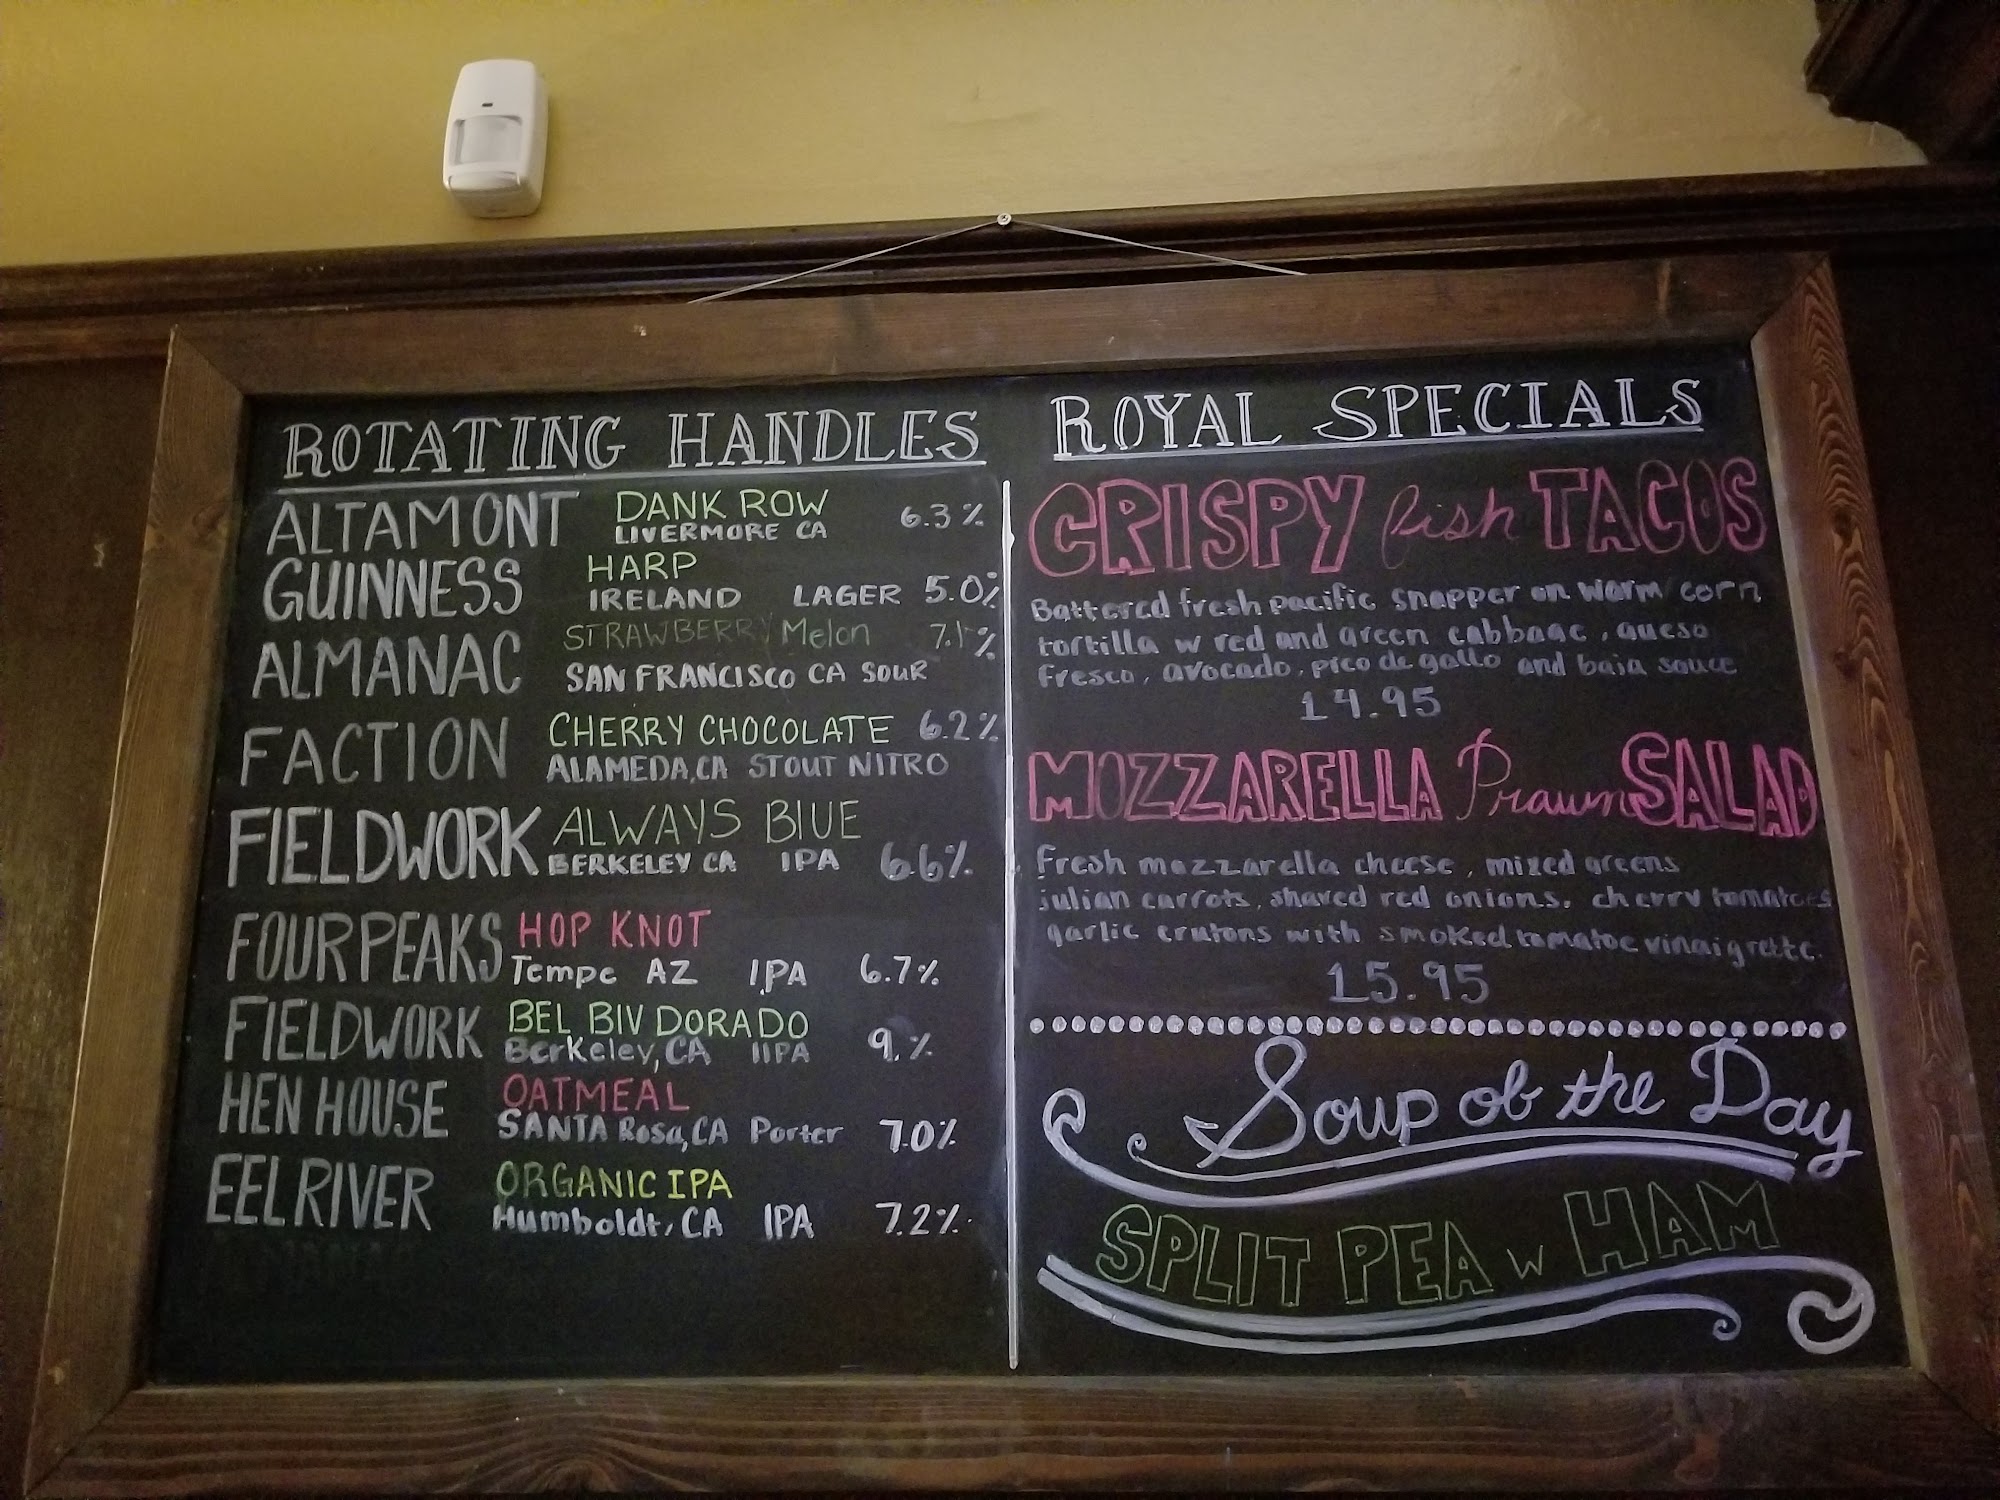 ROTATING HANDLES
ALTAMONT DANK ROW 6.3%
LIVERMORE CA
GUINNESS HARP
IRELAND LAGER 5.0%
ALMANAC STRAWBERRY Melon 7.1%
SAN FRANCISCO CA SOUR
FACTION CHERRY CHOCOLATE 6.2%
ALAMEDA, CA STOUT NITRO
FIELDWORK ALWAYS BLUE
BERKELEY CA IPA 6.6%
FOUR PEAKS HOP KNOT
Tempe AZ IPA 6.7%
FIELDWORK BEL BIV DORADO
Berkeley, CA IIPA 9.%
HEN HOUSE OATMEAL
SANTA Rosa, CA Porter 7.0%
EEL RIVER ORGANIC IPA
Humboldt, CA IPA 7.2%
ROYAL SPECIALS
CRISPY fish TACOS
Battered fresh pacific snapper on warm corn
tortilla w red and green cabbage, queso
fresco, avocado, pico de gallo and baja sauce
14.95
MOZZARELLA Prawn SALAD
Fresh mozzarella cheese, mixed greens
julian carrots, shaved red onions, cherry tomatoes
garlic crutons with smoked tomatoe vinaigrette.
15.95
Soup of the Day
SPLIT PEA W HAM